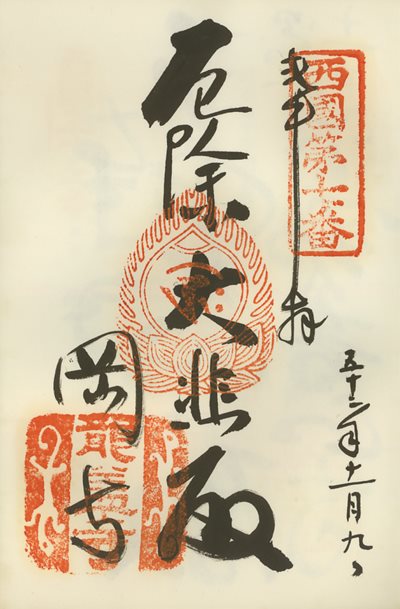 西國第七番
奉拝
五十二年十一月九日
厄除大悲殿
岡寺
龍蓋寺